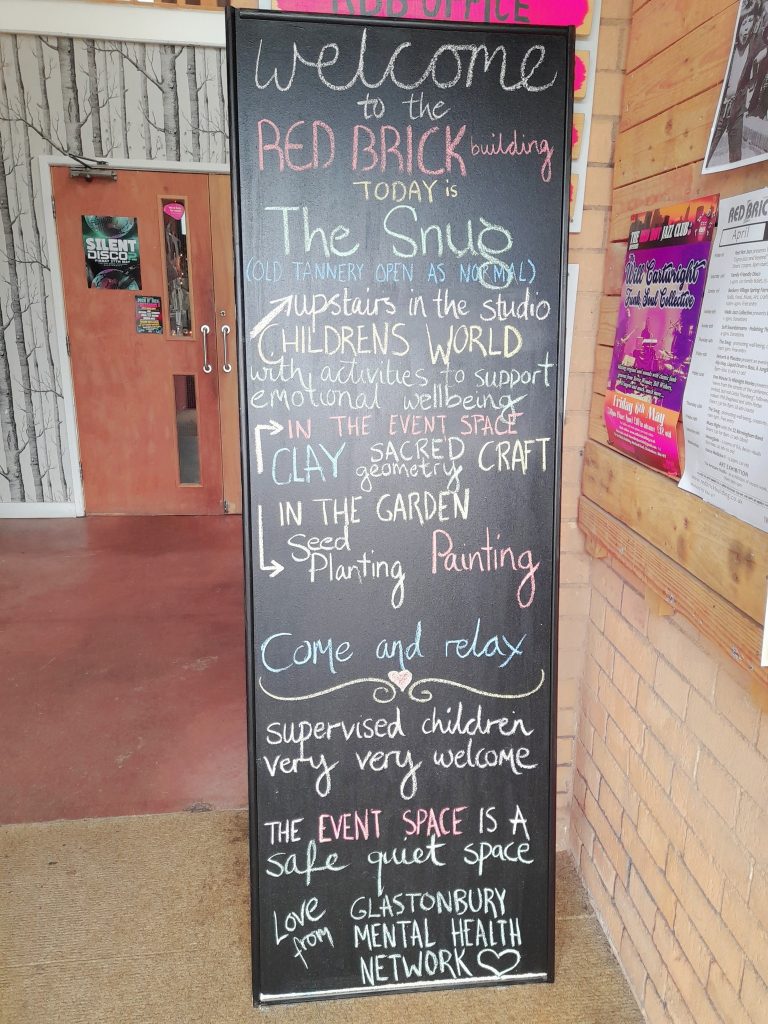 RDB OFFICE
welcome
to the
RED BRICK building
TODAY is
The Snug
(OLD TANNERY OPEN AS NORMAL)
upstairs in the studio
CHILDRENS WORLD
with activities to support
emotional wellbeing
IN THE EVENT SPACE
CLAY SACRED geometry CRAFT
IN THE GARDEN
Seed Planting Painting
Come and relax
supervised children
very very welcome
THE EVENT SPACE IS A
safe quiet space
Love from GLASTONBURY
MENTAL HEALTH
NETWORK
SILENT
DISCO
JAZZ CLUB
Will Cartwright
Funk Soul Collective
Friday 6th May
RED BRICK
April
ART EXHIBITION